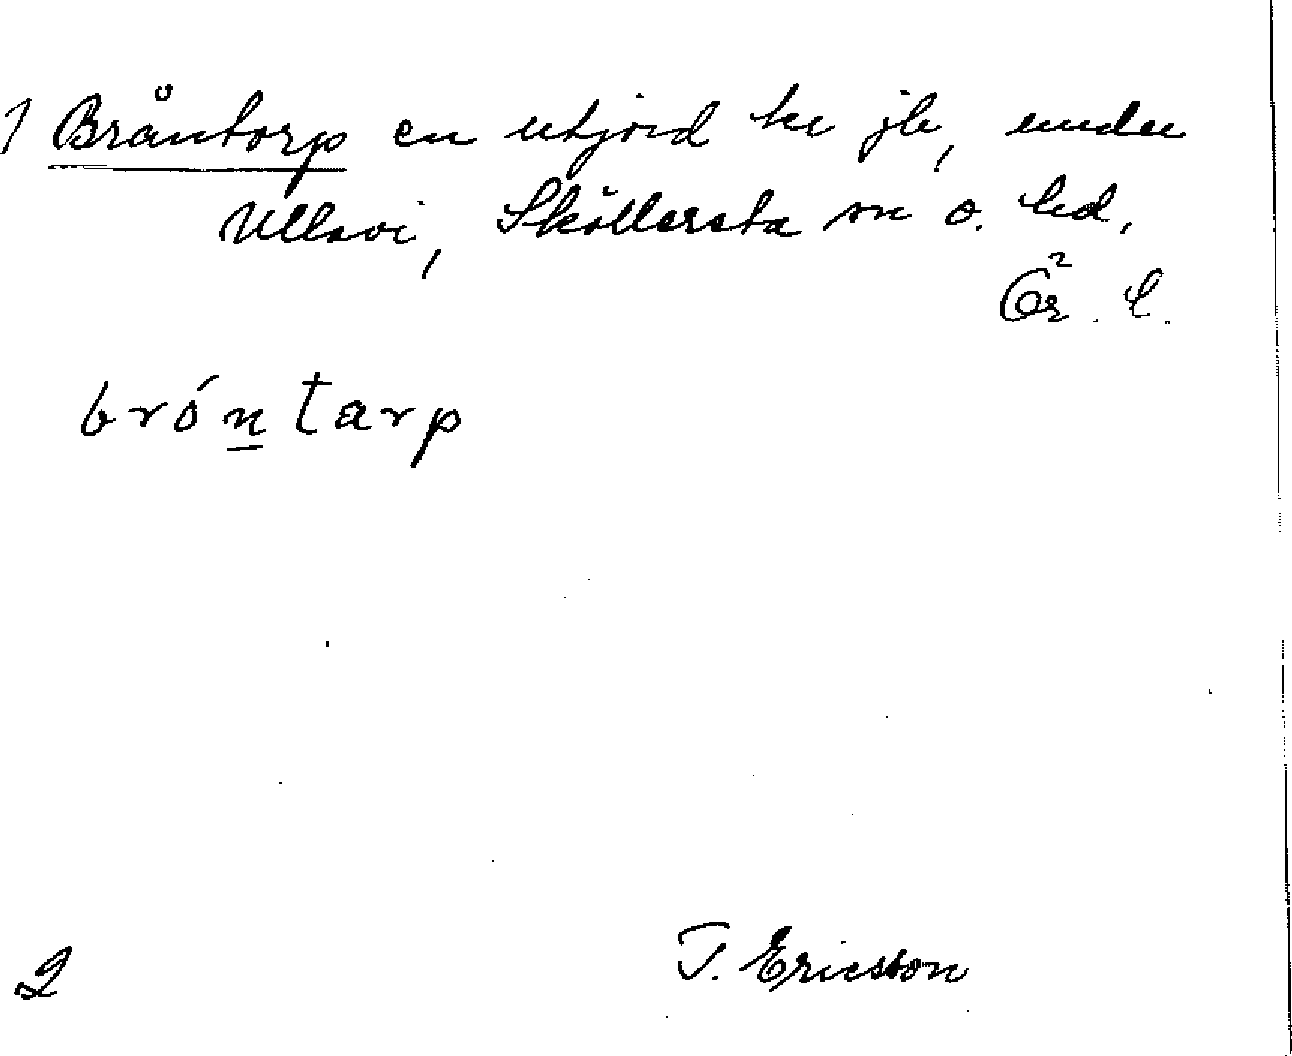 1 Bråntorp en utjord ke jb, under
Ullavi, Sköllersta sn o. hd,
Ör. l.
bróntarp
2
T. Ericsson